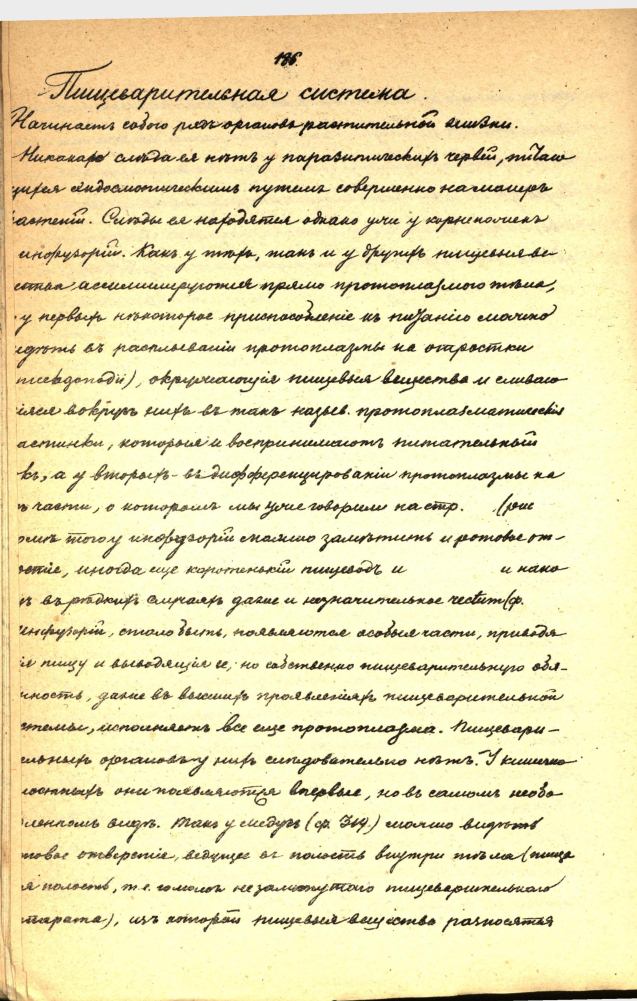 186.
Пищеварительная система.
Начинаетъ собою рядъ органовъ растительной жизни.
Никакого слѣда ея нѣтъ у паразитическихъ червей, питаю
щихся эндосмотическимъ путемъ совершенно на манеръ
растеній. Слѣды ея находятся однако уже у корненожекъ
инфузорій. Какъ у тѣхъ, такъ и у другихъ пищевыя ве
ства ассимилируются прямо протоплазмою тѣла,
у первыхъ нѣкоторое приспособленіе къ питанію можно
идѣть въ расплываніи протоплазмы на отростки
псевдоподіи), окружающія пищевыя вещества и сливаю
іяся вокругъ нихъ въ такъ назыв. протоплазматическія
астинки, которыя и воспринимаютъ питательный
къ, а у вторыхъ - въ дифференцированіи протоплазмы на
ъ части, о которомъ мы уже говорили на стр. (рис
омъ того у инфузорій можно замѣтить и ротовое от-
стіе, иногда еще коротенькій пищеводъ и и нако
ъ въ рѣдкихъ случаяхъ даже и незначительное (ф.
инфузорій, стало быть, появляются особыя части, приводя
ія пищу и выводящія ее, но собственно пищеварительную обя-
нность, даже въ высшихъ проявленіяхъ пищеварительной
стемы, исполняетъ все еще протоплазма. Пищевари-
ельныхъ органовъ у нихъ слѣдовательно нѣтъ. У кишечно
лостныхъ они появляются впервые, но въ самомъ необо
бленномъ видѣ. Такъ у медузъ (ф. 319.) можно видѣть
товое отверстіе, ведущее въ полость внутри тѣла (пище
я полость, т. е. гомологъ незамкнутаго пищеварительнаго
парата), изъ которой пищевыя вещества разносятся